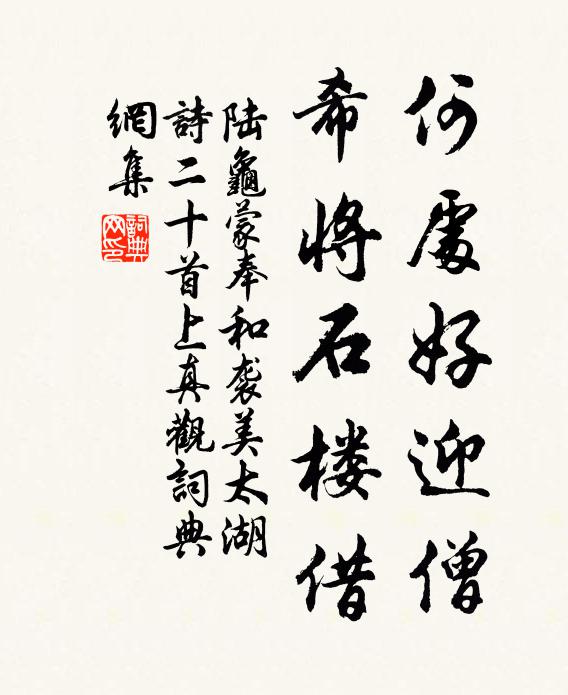 何處好迎僧
希將石楼借
陆龜蒙奉和袭美太湖
詩二十首上真觀詞典
網集
詞典網印